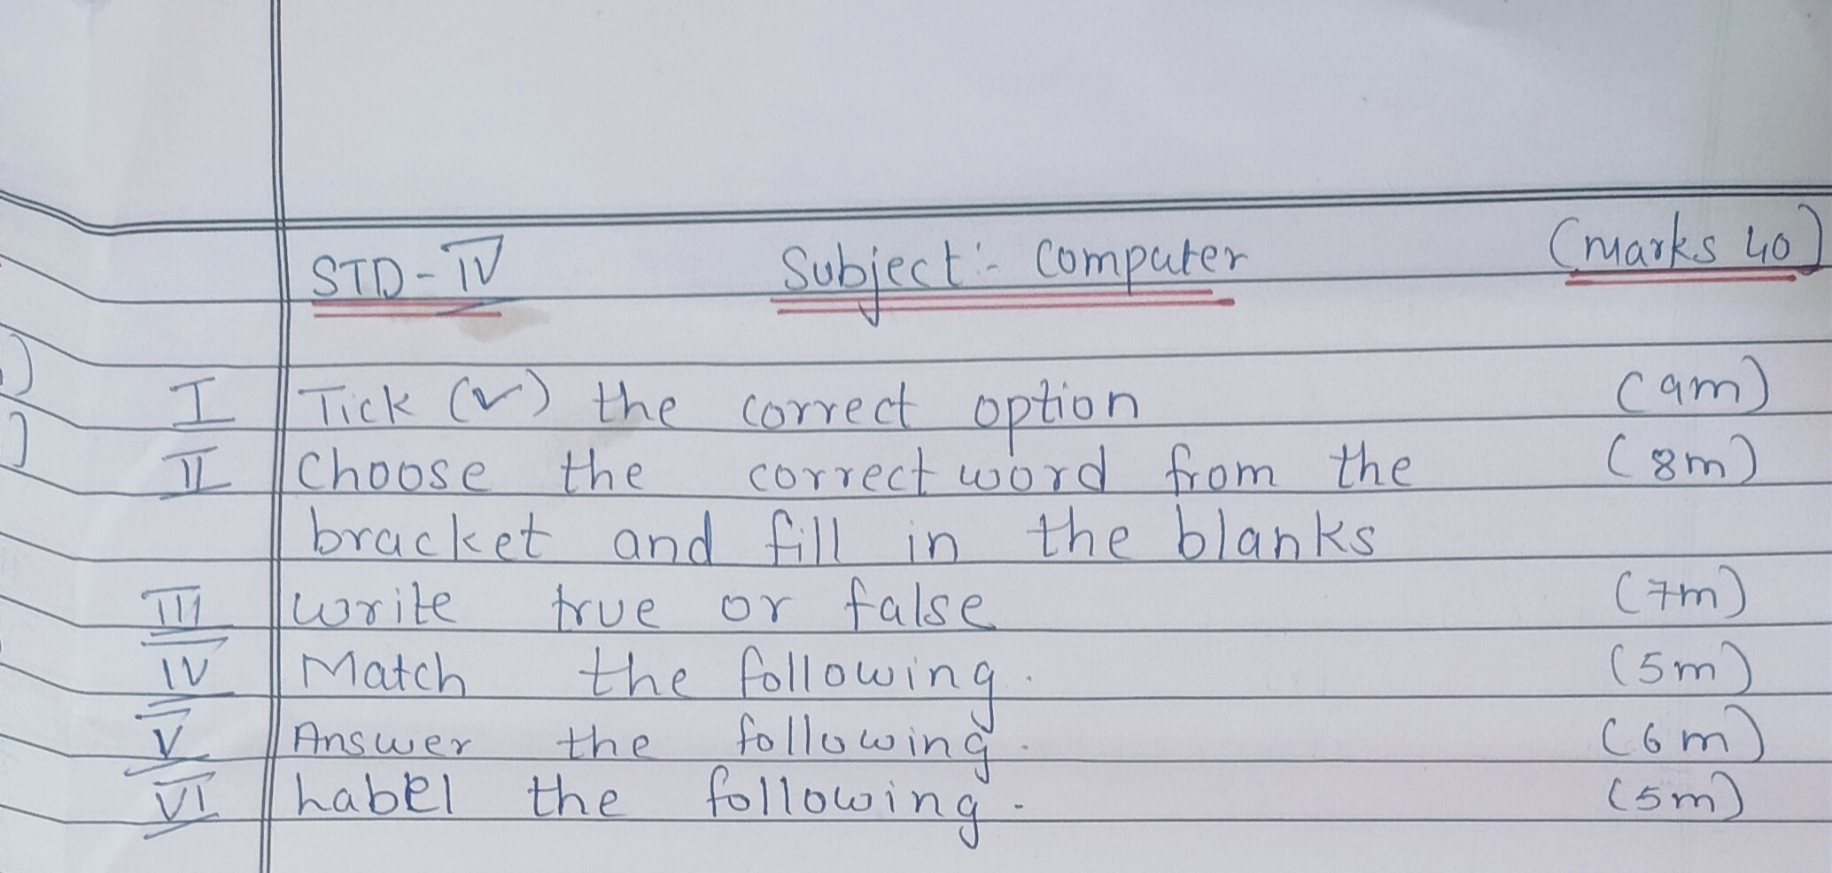 STD-IV Subject:- Computer (marks 40)
I Tick (✓) the correct option (9m)
II Choose the correct word from the (8m)
bracket and fill in the blanks
III write true or false (7m)
IV Match the following. (5m)
V Answer the following. (6m)
VI Label the following. (5m)